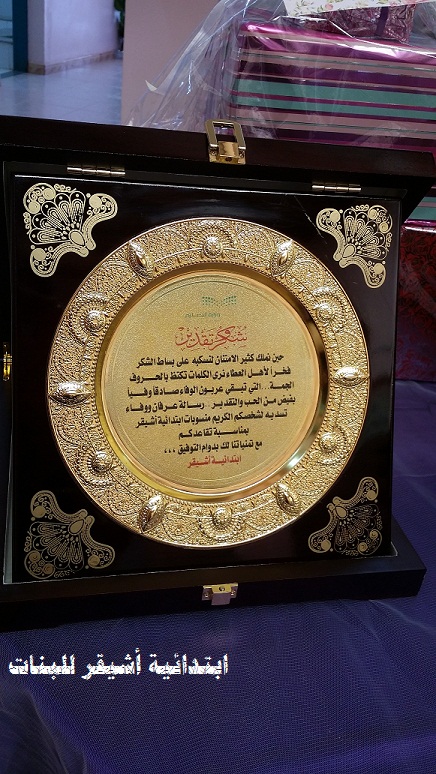 وزارة التعليم
شكر وتقدير
حين نملك كثير الامتنان لنسكبه على بساط الشكر
فخرا لأهل العطاء نرى الكلمات تكتظ بالحروف
الجمة...التي تبقى عربون الوفاء صادقا وفيا
بفيض من الحب والتقدير.. رسالة عرفان ووفاء
نسديه لشخصكم الكريم منسوبات ابتدائية أشيقر
بمناسبة تقاعدكم
مع تمنياتنا لك بدوام التوفيق ،،،
ابتدائية أشيقر
ابتدائية أشيقر للبنات